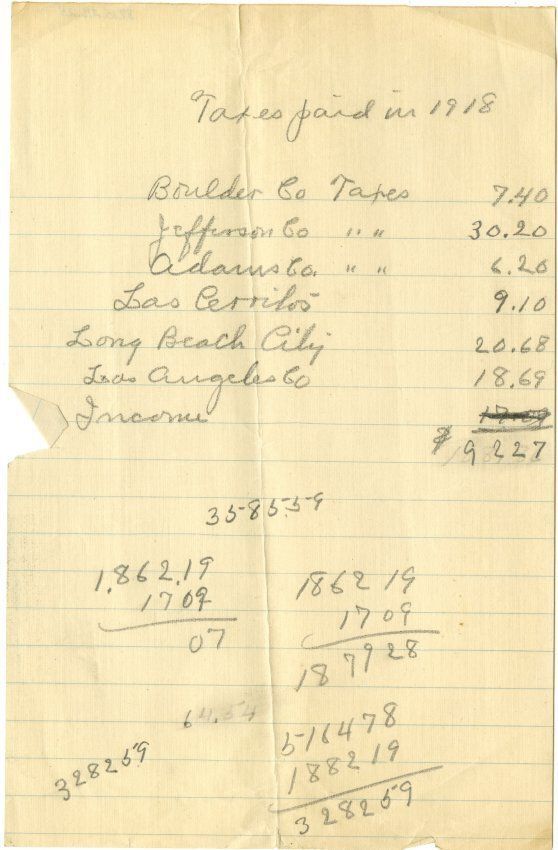 Taxes paid in 1918
Boulder Co Taxes 7.40
Jefferson Co " " 30.20
Adams Co. " " 6.20
Los Cerritos 9.10
Long Beach City 20.68
Los Angeles Co 18.69
Income 17.09
$ 9227
3585.59
1,862.19
1709
07
186219
1709
187928
64.54
516478
188219
328259
328259